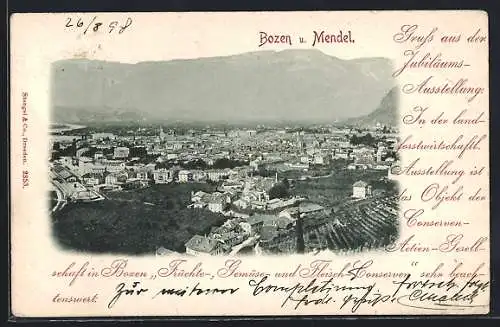 26/8 98
Bozen u. Mendel.
Stengel & Co., Dresden. 2853.
Gruß aus der
Jubiläums-
Ausstellung:
In der land-
forstwirtschaftl.
Ausstellung ist
das Objekt der
Conserven-
Actien-Gesell-
schaft in Bozen „Früchte-, Gemüse- und Fleisch-Conserven" sehr beach-
tenswert.
Zur weiteren